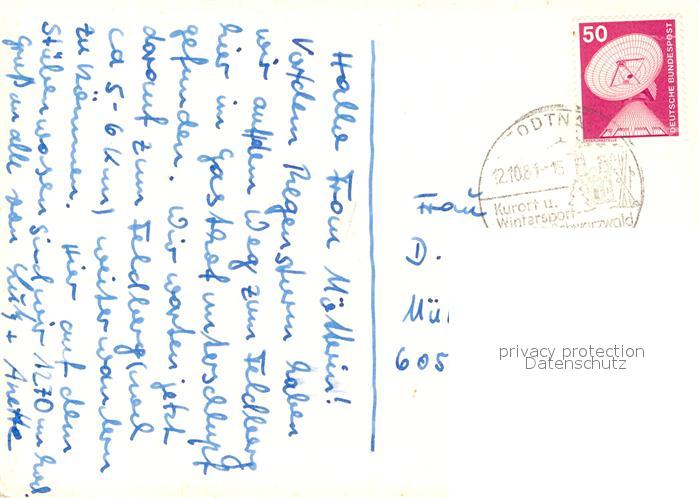 Hallo Frau Mötterin!
Vor dem Regensturm haben
wir auf dem Weg zum Feldberg
hier im Gasthof unterschlupf
gefunden. Wir warten jetzt
darauf zum Feldberg (noch
ca 5-6 Km) weiterwandern
zu können. Hier auf dem
Stübenwasen sind wir 1270 m hoch
Gruß an alle von Lutz + Anette
50
DEUTSCHE BUNDESPOST
TODTNA
12.10.81-15
Kurort u.
Wintersport
Schwarzwald
Frau
D.
Mül
605
privacy protection
Datenschutz